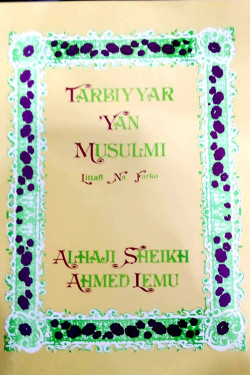 TARBIYYAR
'YAN
MUSULMI
Littafi Na Farko
ALHAJI SHEIKH
AHMED LEMU